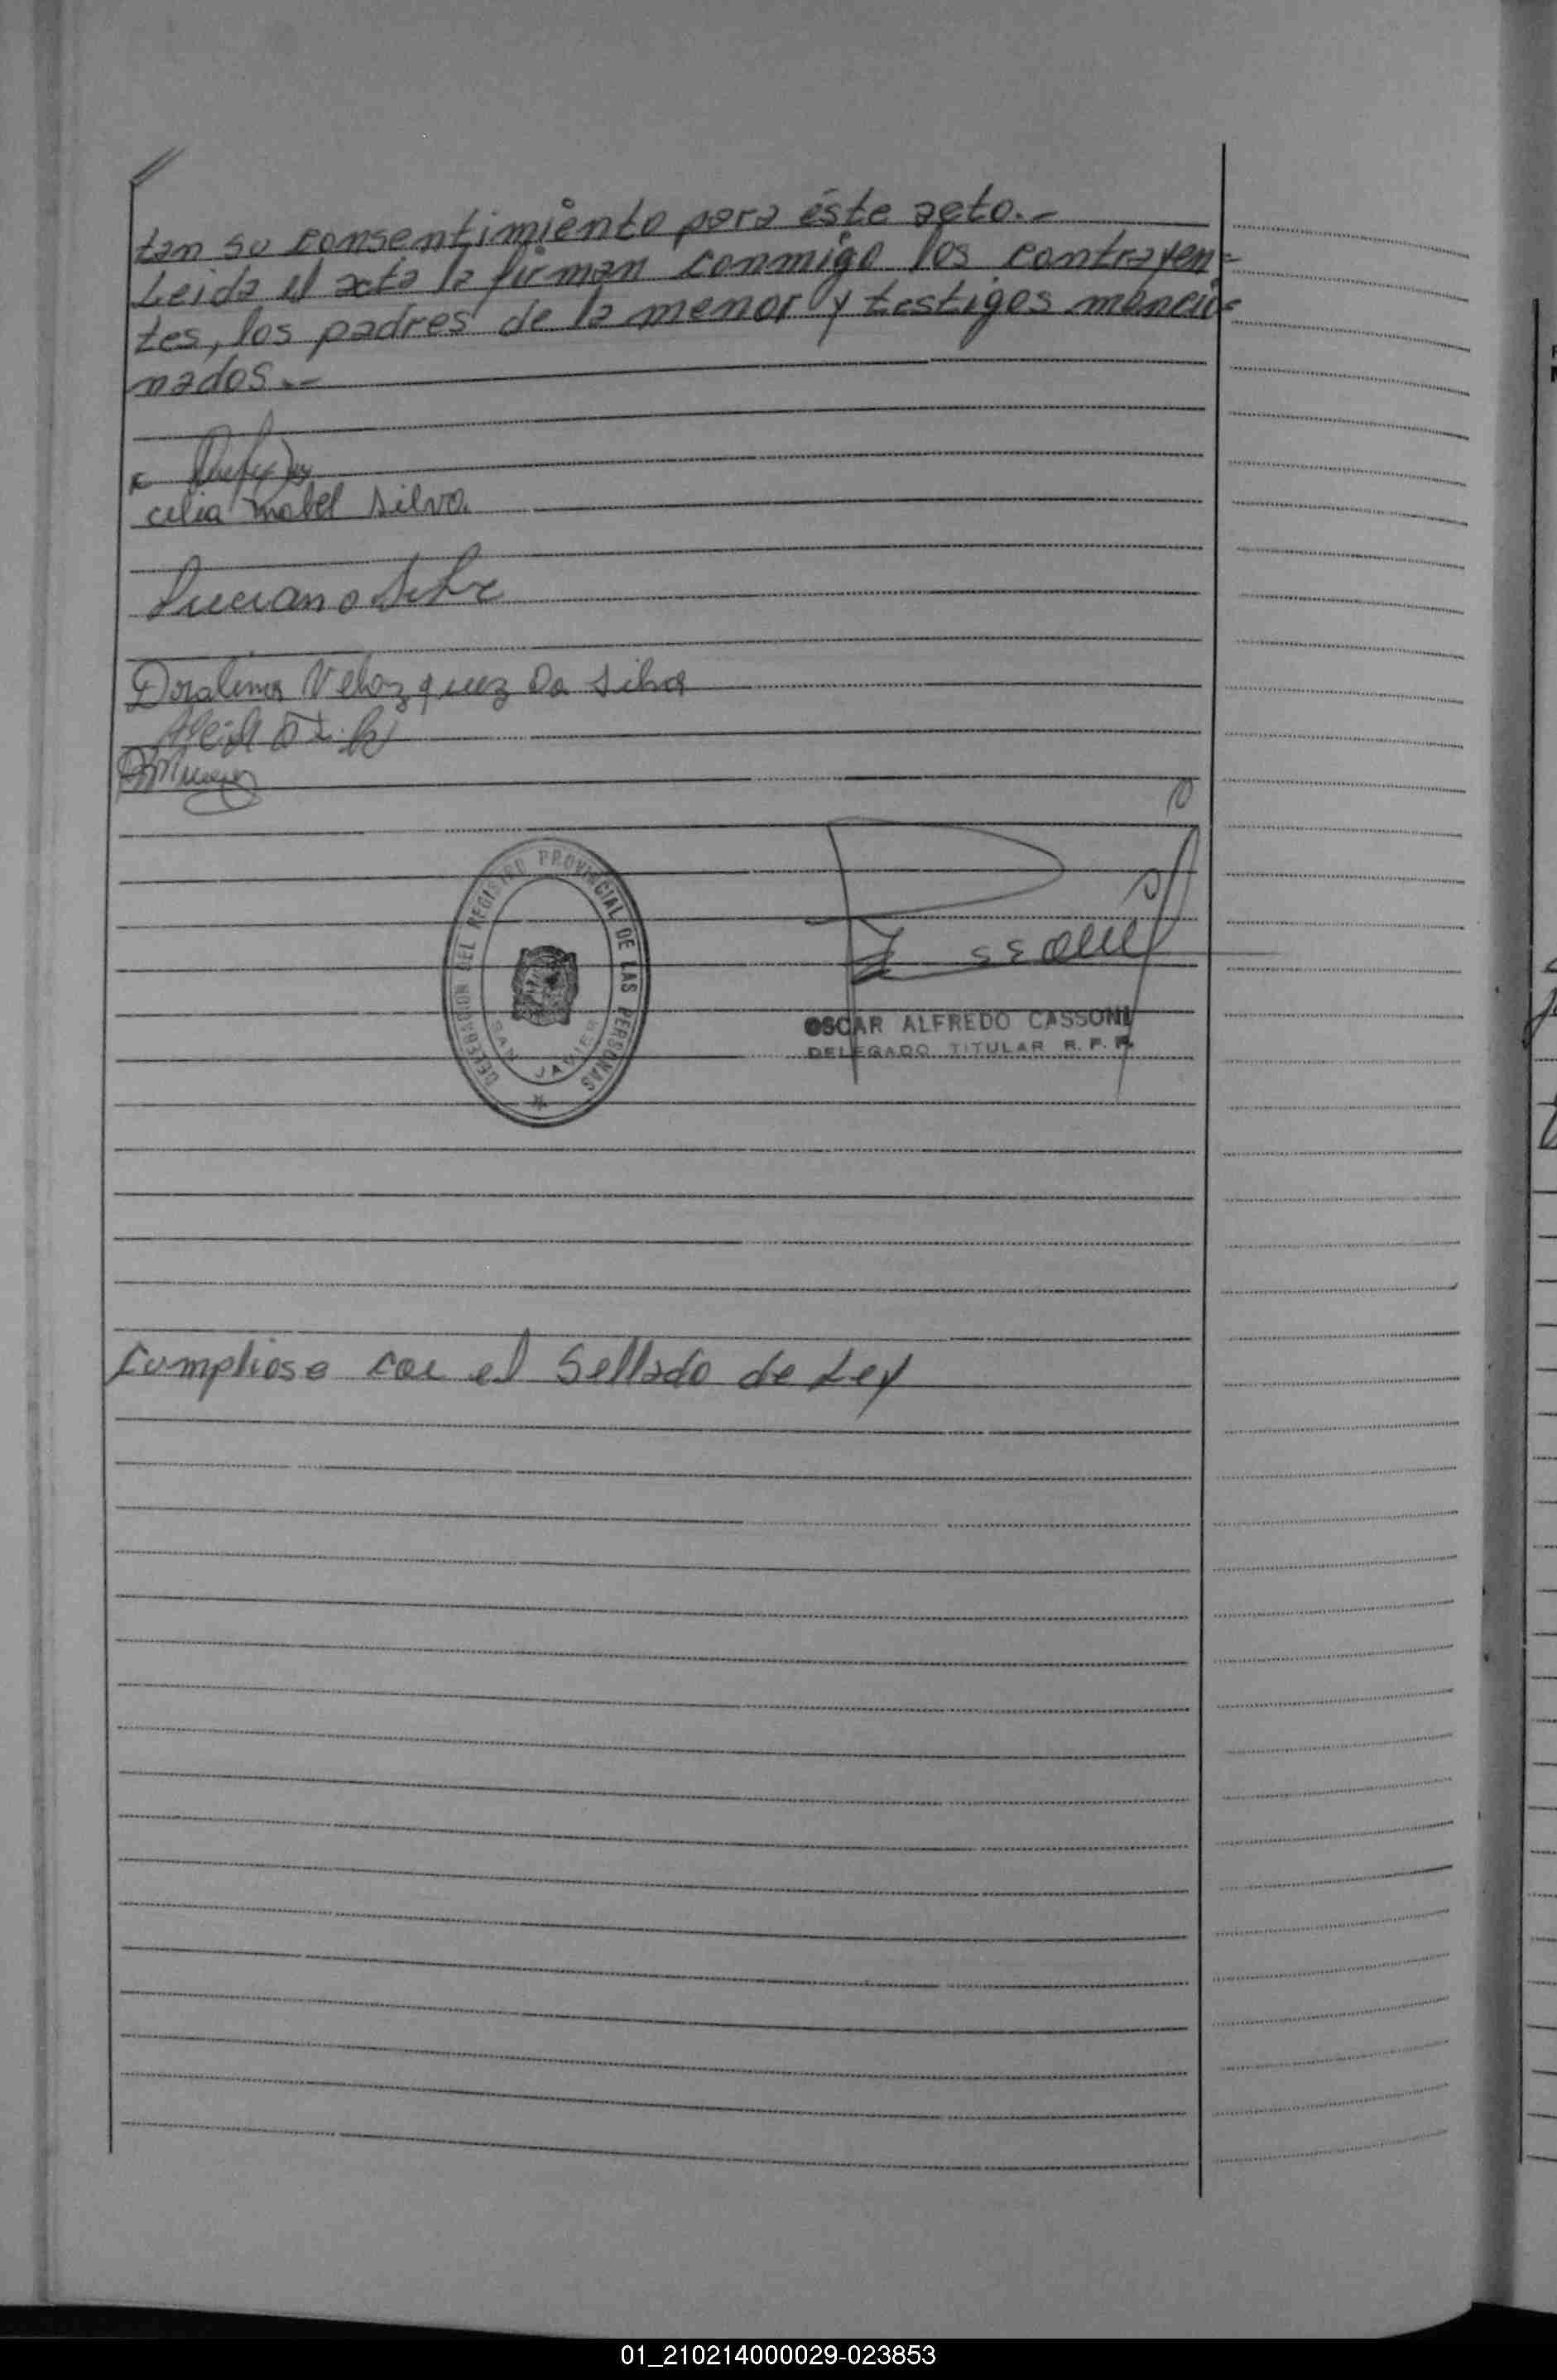 tan su consentimiento para éste acto.-
Leida el acta la firman conmigo los contrayen=
tes, los padres de la menor y testigos mencio=
nados.-
celia mabel silva.
Luciano Silva
Doralina Velazquez Da Silva
DELEGACION DEL REGISTRO PROVINCIAL DE LAS PERSONAS
SAN JAVIER
OSCAR ALFREDO CASSONI
DELEGADO TITULAR R. P. P.
Cumpliose con el Sellado de Ley
01_210214000029-023853